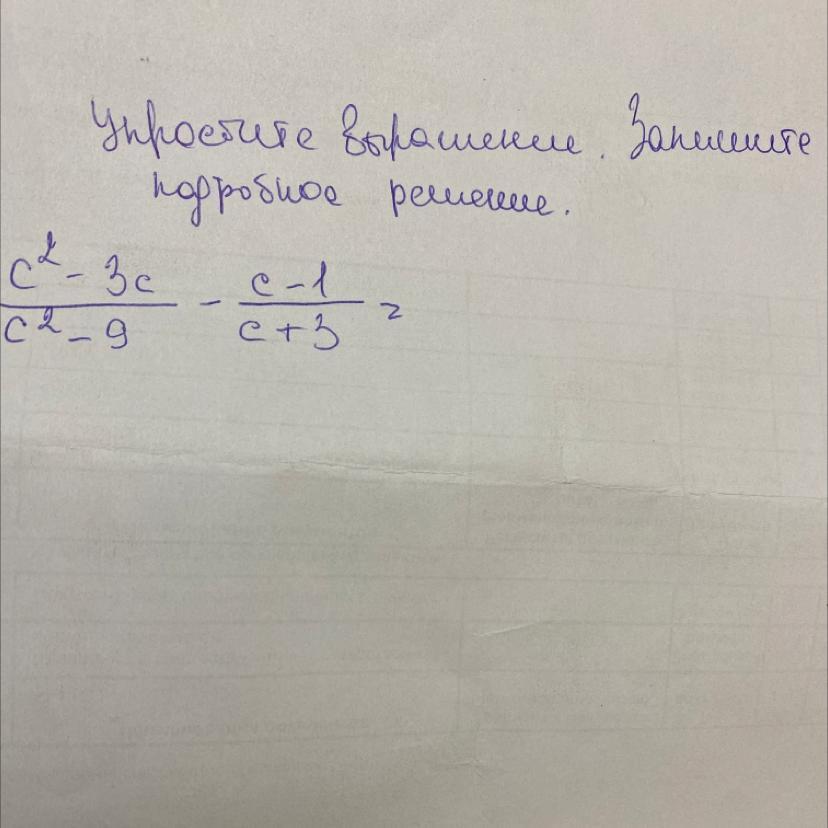 Упростите выражение. Запишите
подробное решение.
c² - 3c / c² - 9 - c - 1 / c + 3 =